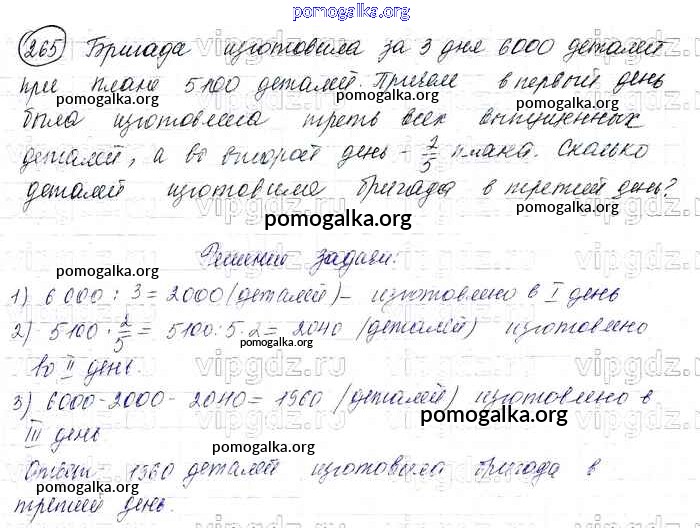 pomogalka.org
265 Бригада изготовила за 3 дня 6000 деталей
при плане 5100 деталей. Причем в первый день
pomogalka.org pomogalka.org
была изготовлена треть всех выпущенных
pomogalka.org
деталей, а во второй день - 2/5 плана. Сколько
деталей изготовила бригада в третий день?
pomogalka.org pomogalka.org
vipgdz.ru vipgdz.ru
Решение задачи:
pomogalka.org
1) 6000 : 3 = 2000 (деталей) - изготовлено в I день
2) 5100 · 2/5 = 5100 : 5 · 2 = 2040 (деталей) изготовлено
pomogalka.org
во II день
vipgdz.ru vipgdz.ru
3) 6000 - 2000 - 2040 = 1960 (деталей) изготовлено в
pomogalka.org
III день
pomogalka.org
Ответ: 1960 деталей изготовила бригада в
pomogalka.org pomogalka.org
третий день.